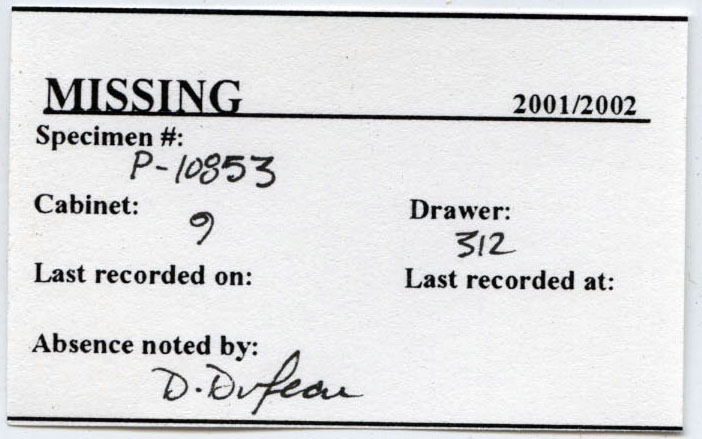 MISSING 2001/2002
Specimen #:
P-10853
Cabinet: Drawer:
9 312
Last recorded on: Last recorded at:
Absence noted by:
D. Dufeau